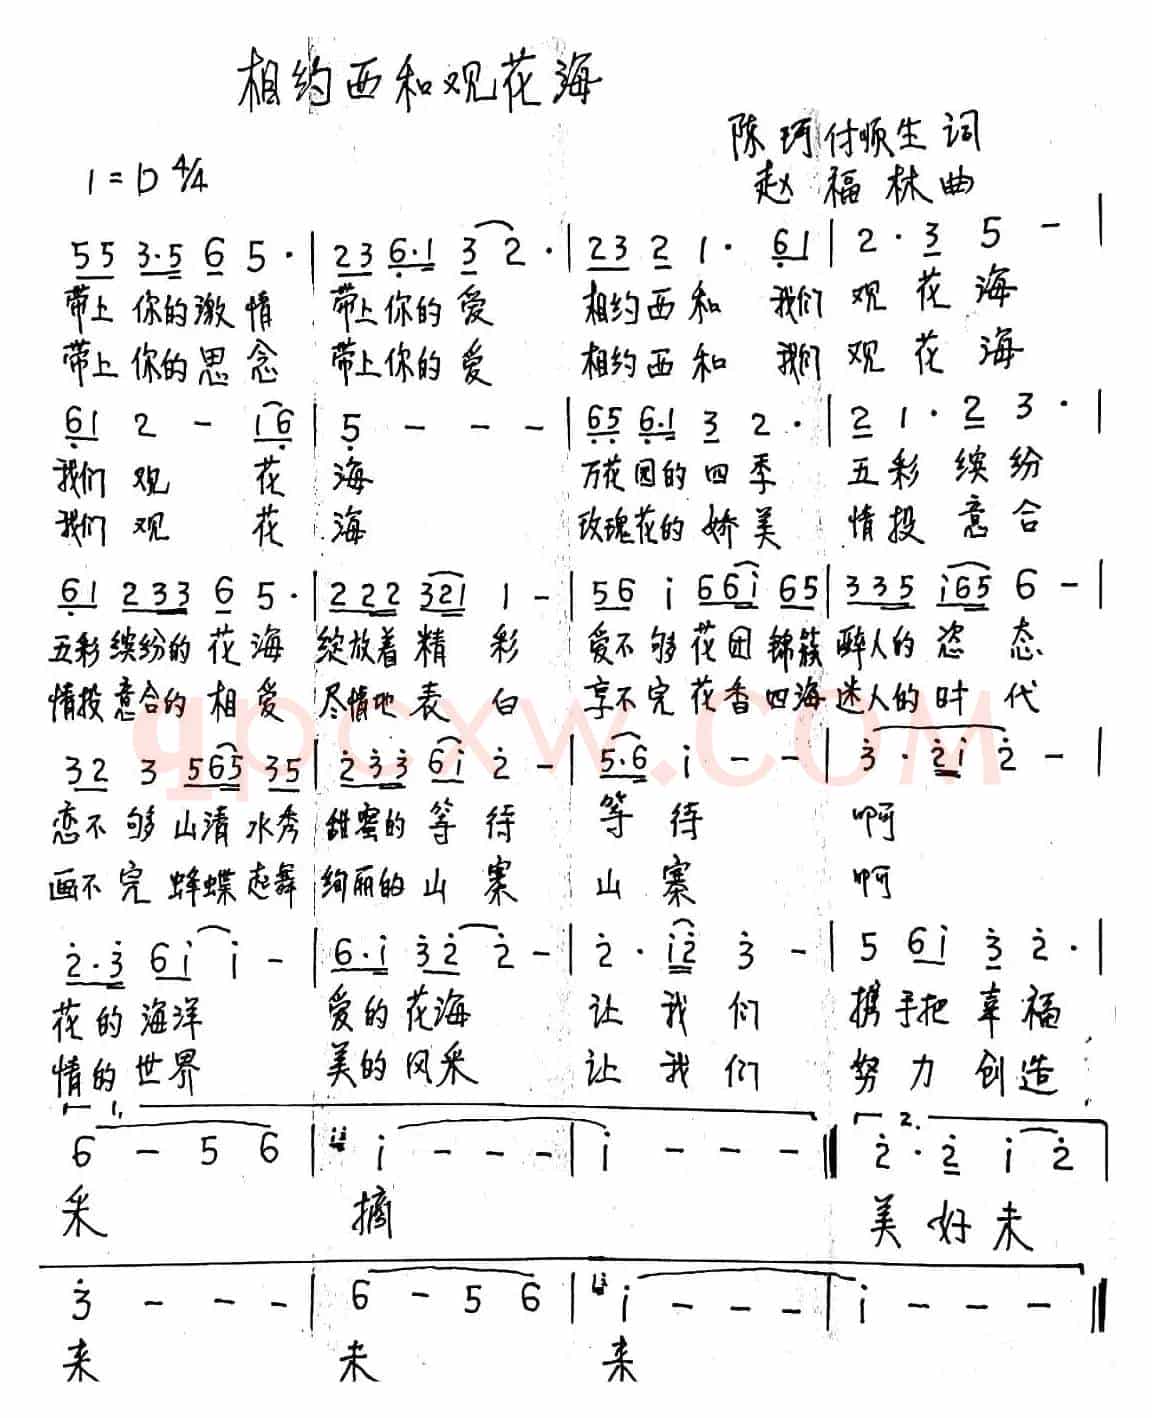 相约西和观花海
陈珂付顺生词
1=D 4/4
赵福林曲
55 3·5 6 5· | 23 6·1 3 2· | 23 2 1· 61 | 2· 3 5 - |
带上你的激情 带上你的爱 相约西和 我们 观花海
带上你的思念 带上你的爱 相约西和 我们 观花海
61 2 - 16 | 5 - - - | 65 6·1 3 2· | 2 1· 2 3· |
我们 观 花 海 万花园的四季 五彩缤纷
我们 观 花 海 玫瑰花的娇美 情投意合
61 233 6 5· | 222 321 1 - | 56 i 66i 65 | 335 i65 6 - |
五彩缤纷的花海 绽放着精彩 爱不够花团锦簇 醉人的恣态
情投意合的相爱 尽情地表白 享不完花香四海 迷人的时代
qpcxw.com
32 3 565 35 | 233 6i 2 - | 5·6 i - - | 3· 2i 2 - |
恋不够山清水秀 甜蜜的等待 等待 啊
画不完蜂蝶起舞 绚丽的山寨 山寨 啊
2·3 6i i - | 6·i 32 2 - | 2· i2 3 - | 5 6i 3 2· |
花的海洋 爱的花海 让我们 携手把幸福
情的世界 美的风采 让我们 努力创造
1.
2.
6 - 5 6 | i - - - | i - - - | 2· 2 i 2 |
采 摘 美好未
3 - - - | 6 - 5 6 | i - - - | i - - - |
来 未 来